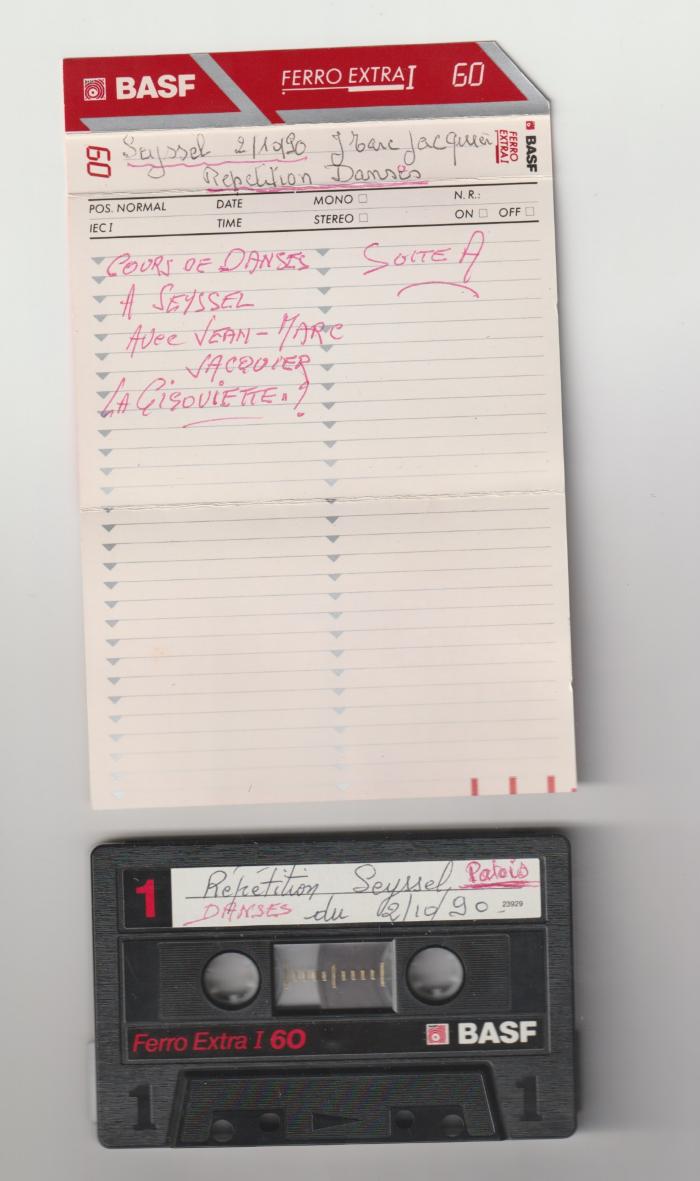 BASF FERRO EXTRA I 60
60 Seyssel 2/10/90 J Marc Jacquier FERRO EXTRA I BASF
Répétition Danses
POS. NORMAL DATE MONO N.R.:
IEC I TIME STEREO ON OFF
COURS DE DANSES SUITE A
A SEYSSEL
AVec JEAN-MARC
JACQUIER
LA GIGOUIETTE.?
1 Répétition Seyssel Patois
DANSES du 2/10/90 23929
Ferro Extra I 60 BASF
1 1